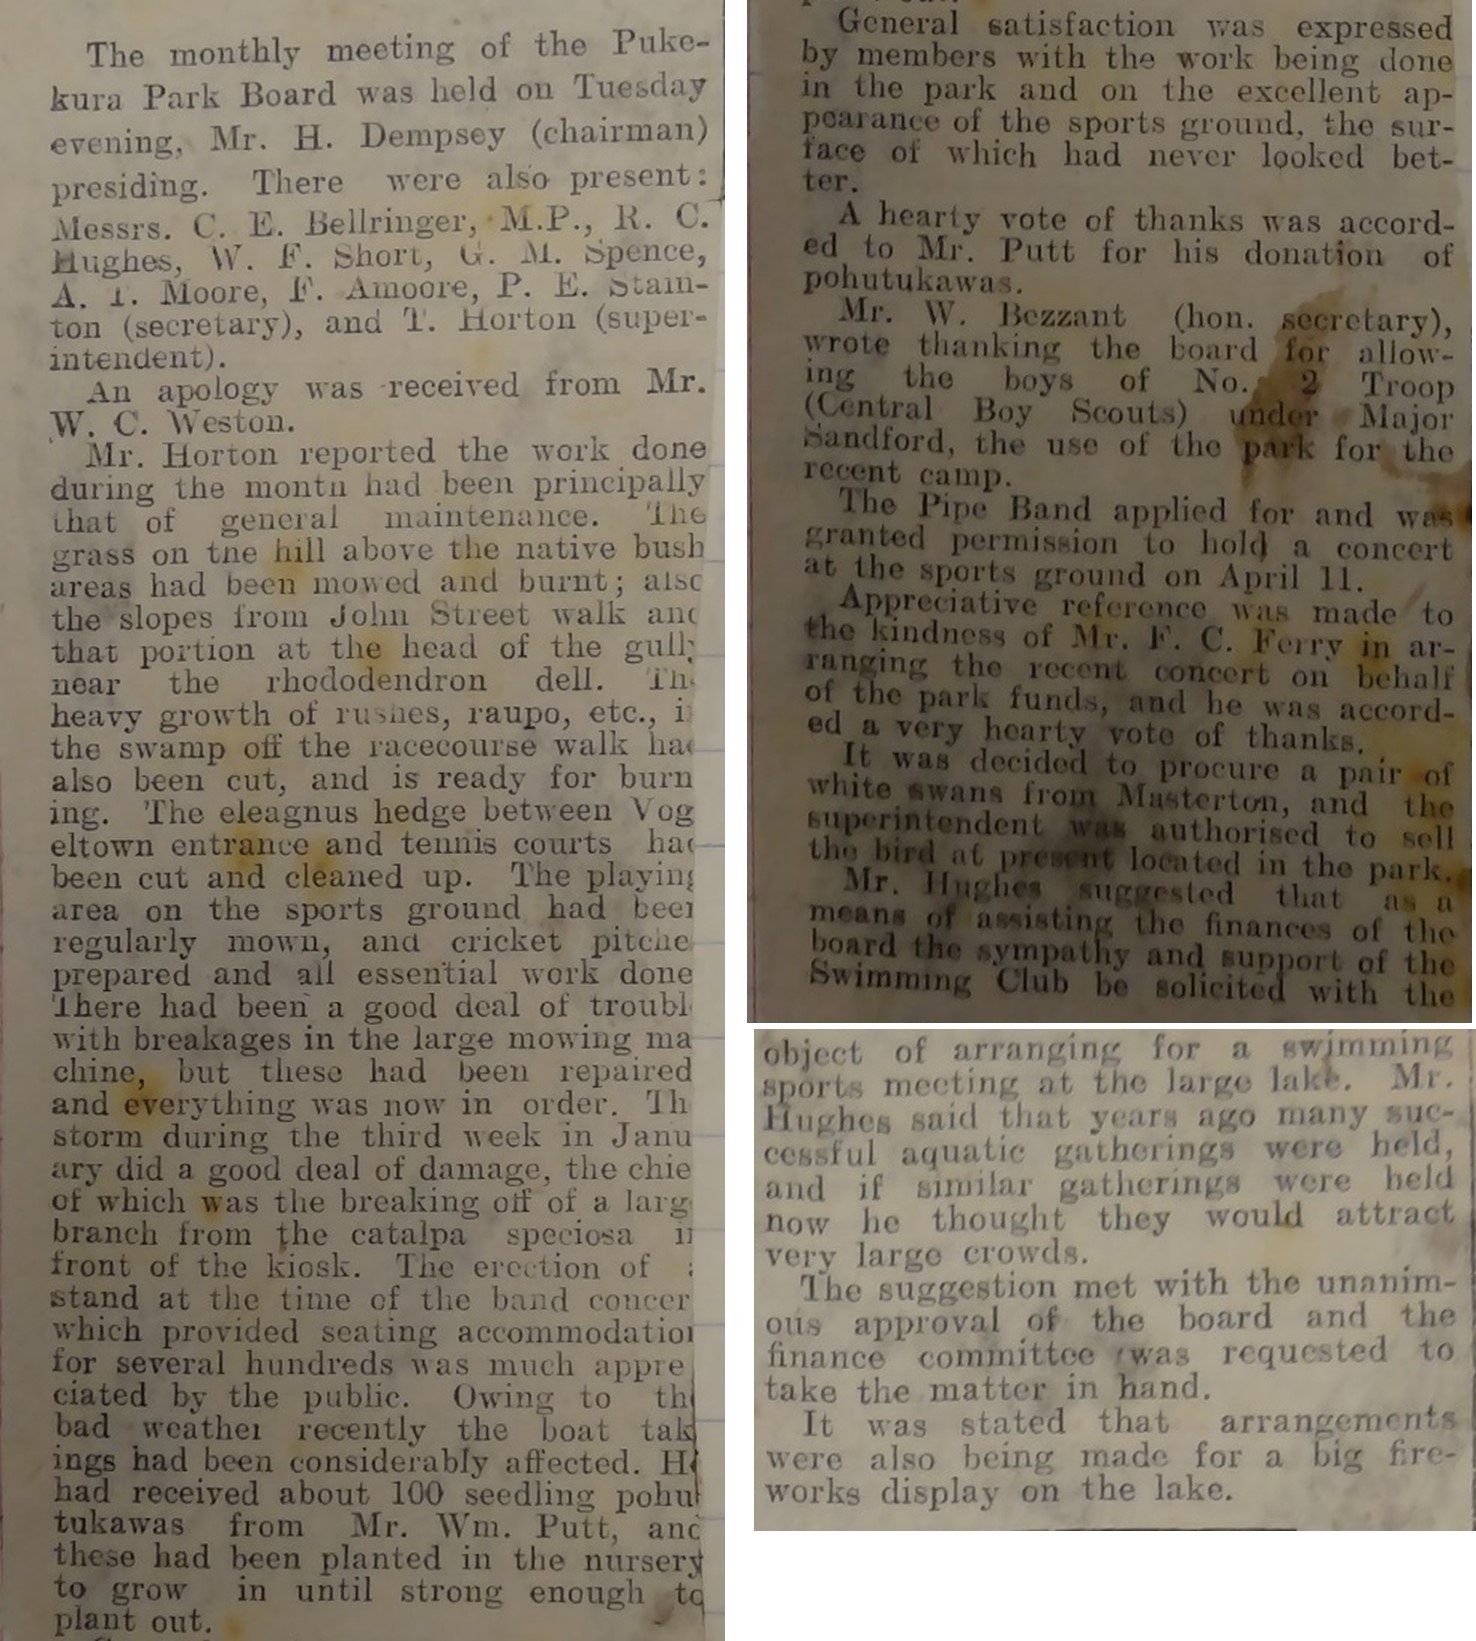 The monthly meeting of the Puke-
kura Park Board was held on Tuesday
evening, Mr. H. Dempsey (chairman)
presiding. There were also present:
Messrs. C. E. Bellringer, M.P., R. C.
Hughes, W. F. Short, G. M. Spence,
A. T. Moore, F. Amoore, P. E. Stain-
ton (secretary), and T. Horton (super-
intendent).
An apology was received from Mr.
W. C. Weston.
Mr. Horton reported the work done
during the month had been principally
that of general maintenance. The
grass on the hill above the native bush
areas had been mowed and burnt; also
the slopes from John Street walk and
that portion at the head of the gully
near the rhododendron dell. The
heavy growth of rushes, raupo, etc., i
the swamp off the racecourse walk ha
also been cut, and is ready for burn
ing. The eleagnus hedge between Vog
eltown entrance and tennis courts ha
been cut and cleaned up. The playing
area on the sports ground had been
regularly mown, and cricket pitche
prepared and all essential work done
There had been a good deal of troubl
with breakages in the large mowing ma
chine, but these had been repaired
and everything was now in order. Th
storm during the third week in Janu
ary did a good deal of damage, the chie
of which was the breaking off of a larg
branch from the catalpa speciosa i
front of the kiosk. The erection of
stand at the time of the band concer
which provided seating accommodation
for several hundreds was much appre
ciated by the public. Owing to th
bad weather recently the boat tak
ings had been considerably affected. He
had received about 100 seedling pohu
tukawas from Mr. Wm. Putt, and
these had been planted in the nursery
to grow in until strong enough to
plant out.
General satisfaction was expressed
by members with the work being done
in the park and on the excellent ap-
pearance of the sports ground, the sur-
face of which had never looked bet-
ter.
A hearty vote of thanks was accord-
ed to Mr. Putt for his donation of
pohutukawas.
Mr. W. Bezzant (hon. secretary),
wrote thanking the board for allow-
ing the boys of No. 2 Troop
(Central Boy Scouts) under Major
Sandford, the use of the park for the
recent camp.
The Pipe Band applied for and was
granted permission to hold a concert
at the sports ground on April 11.
Appreciative reference was made to
the kindness of Mr. F. C. Ferry in ar-
ranging the recent concert on behalf
of the park funds, and he was accord-
ed a very hearty vote of thanks.
It was decided to procure a pair of
white swans from Masterton, and the
superintendent was authorised to sell
the bird at present located in the park.
Mr. Hughes suggested that as a
means of assisting the finances of the
board the sympathy and support of the
Swimming Club be solicited with the
object of arranging for a swimming
sports meeting at the large lake. Mr.
Hughes said that years ago many suc-
cessful aquatic gatherings were held,
and if similar gatherings were held
now he thought they would attract
very large crowds.
The suggestion met with the unanim-
ous approval of the board and the
finance committee was requested to
take the matter in hand.
It was stated that arrangements
were also being made for a big fire-
works display on the lake.